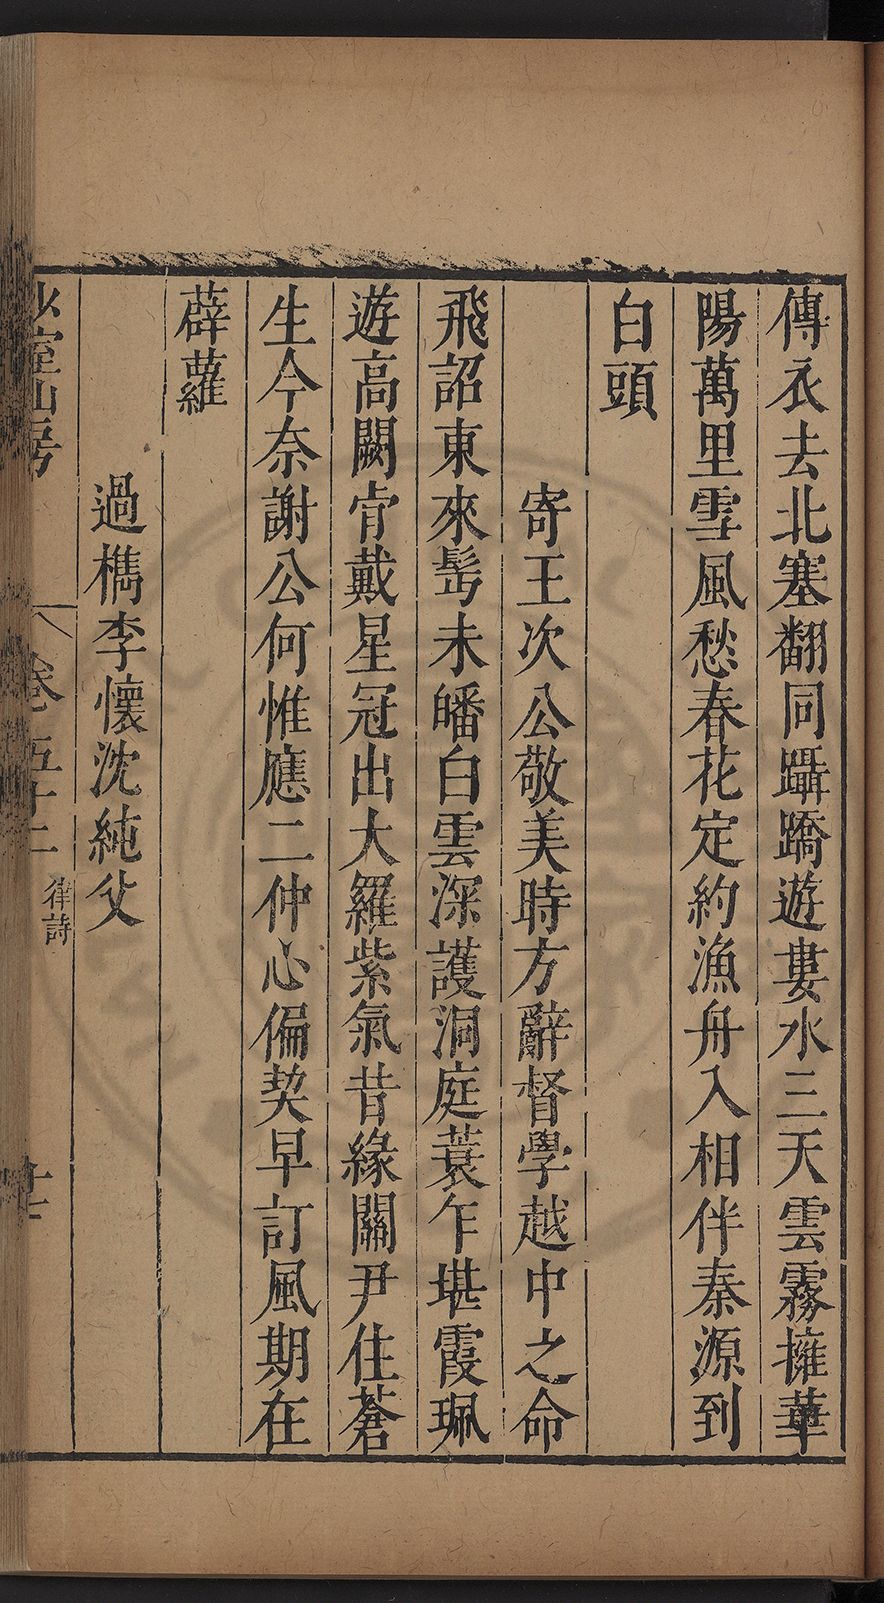 傳衣去北塞翻同躡蹻遊婁水三天雲霧擁華
陽萬里雪風愁春花定約漁舟入相伴秦源到
白頭
寄王次公敬美時方辭督學越中之命
飛詔東來髩未皤白雲深護洞庭蓑乍堪霞珮
遊高闕肯戴星冠出大羅紫氣昔緣關尹住蒼
生今奈謝公何惟應二仲心偏契早訂風期在
薜蘿
過檇李懷沈純父
少室山房
卷五十二 律詩